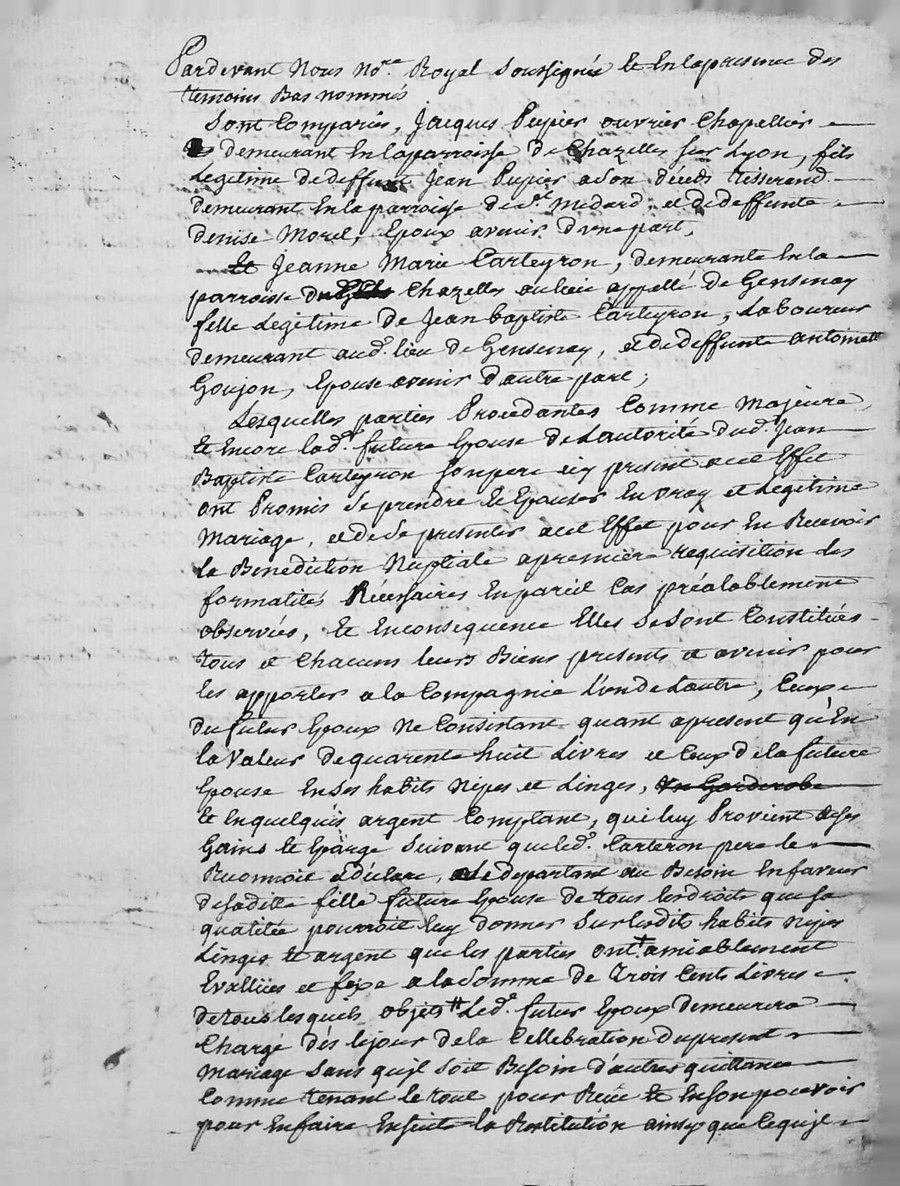 Pardevant Nous No.re Royal Soussignée et En la presence des
temoins Bas nommés
Sont Comparies, Jacques Pupier ouvrier Chapellier
demeurant En la parroisse de Chazelles sur Lyon, fils
Legitime de deffunt Jean Pupier a Son décéds tisserand
demeurant En la parroisse de St. medard, et de deffunte
Denise Morel, Epoux avenir d'vne part,
Et Jeanne Marie Carteyron, demeurante En la
parroisse de Chazelles au lieu appellé de Gensenay
fille Legitime de Jean baptiste Carteyron, Laboureur
demeurant aud. lieu de Gensenay, et de deffunte antoinett
Goujon, Epouse avenir d'autre part;
Lesquelles parties Procedantes Comme Majeure
et Encore lad.e future Epouse de L'autorité dud. Jean
Baptiste Carteyron Son pere icy present a cet Effet
ont Promis Se prendre et Epouser En vray et Legitime
Mariage, et de Se presenter a cet Effet pour En Recevoir
la Benediction Nuptiale a premiere requisition des
formalités Nécessaires En pareil Cas préalablement
observées, et En consequence Elles Se Sont Constituées
tous et Chacuns leurs Biens presents et avenir pour
les apporter a la Compagnie L'un de L'autre, Ceux
du futur Epoux Ne Consistant quant apresent qu'En
la valeur de quarente huit Livres et Ceux de la future
Epouse En Ses habits Nipes et Linges, un Garderobe
et En quelques argent Comptant, qui luy Provient de Ses
Gains et Epargé Suivant que led. Carteron pere le
Reconnoit et déclare, Se departant au Besoin En faveur
de Sa ditte fille future Epouse de tous les droits que Sa
qualitée pourroit luy donner Sur lesdits habits Nipes
Linges et argent que les parties ont + amiablement
Evalliies et fixe a la Somme de trois Cents Livres
de tous lesquels objets # Led. futur Epoux demeurera
Chargé dés lejour de la Cellebration du present
Mariage Sans qu'jl Soit Besoin d'autres quittance
Comme tenant le tout pour Reçu et En Son pouvoir
pour En faire Ensuite la Restitution ainsy que Ce qu'jl